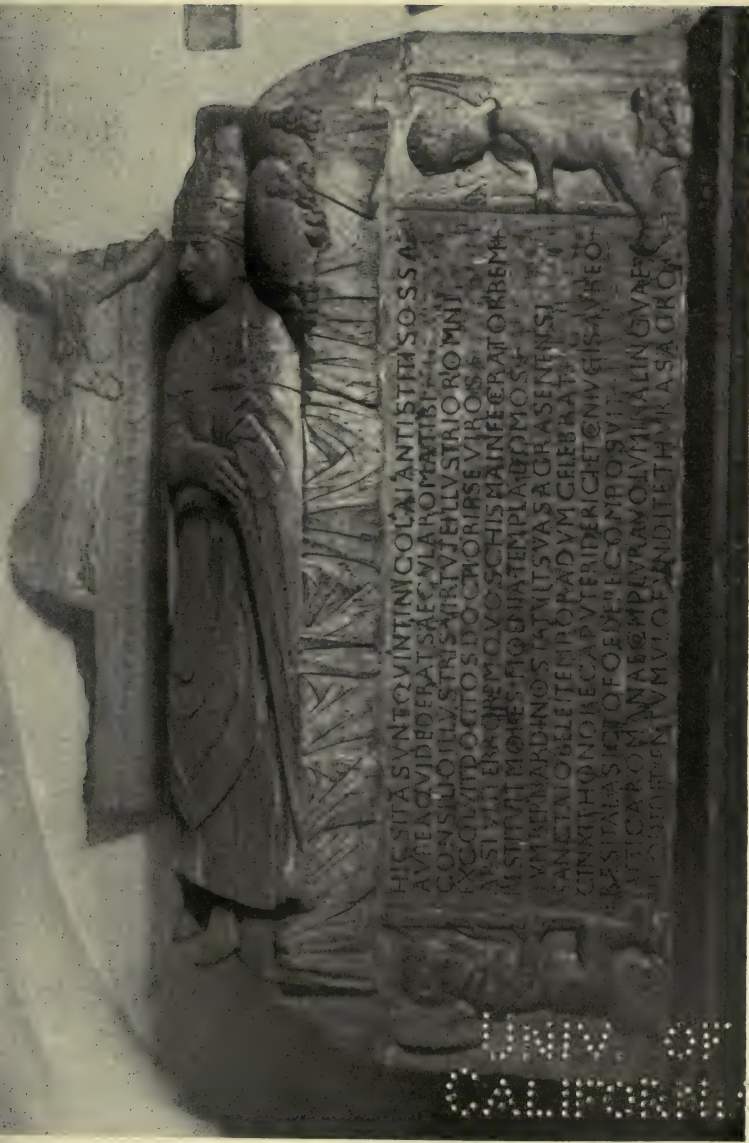 HIC SITA SVNT QVINTI NICOLAI ANTISTITIS OSSA
AVREA QVI DEDERAT SAECVLA ROMA TIBI
CONSILIO ILLVSTRIS VIRTVTE ILLVSTRIOR OMNI
EXCOLVIT DOCTOS DOCTIOR IPSE VIROS
ABSTVLIT ERROREM QVO SCHISMA INFECERAT ORBEM
RESTITVIT MORES MOENIA TEMPLA DOMOS
TVM BERNARDINO STATVIT SVA SACRA SENENSI
SANCTA IOBELEI TEMPORA DVM CELEBRAT
CINXIT HONORE CAPVT FRIDERICI ET AVREO
RES ITALAS ICTO FOEDERE
ATTICA VOLVMINA LINGVAE
TVMVLO FVNDITE THVRA SACRO
UNIV. OF
CALIFORNIA